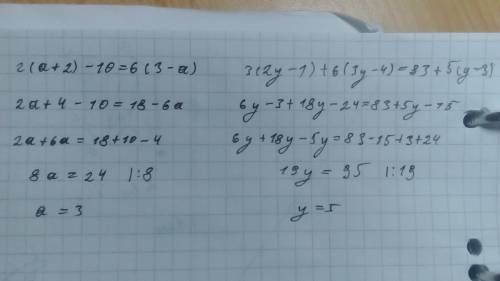 2(a+2)-10=6(3-a)
2a+4-10=18-6a
2a+6a=18+10-4
8a=24 |:8
a=3
3(2y-1)+6(3y-4)=83+5(y-3)
6y-3+18y-24=83+5y-15
6y+18y-5y=83-15+3+24
19y=95 |:19
y=5